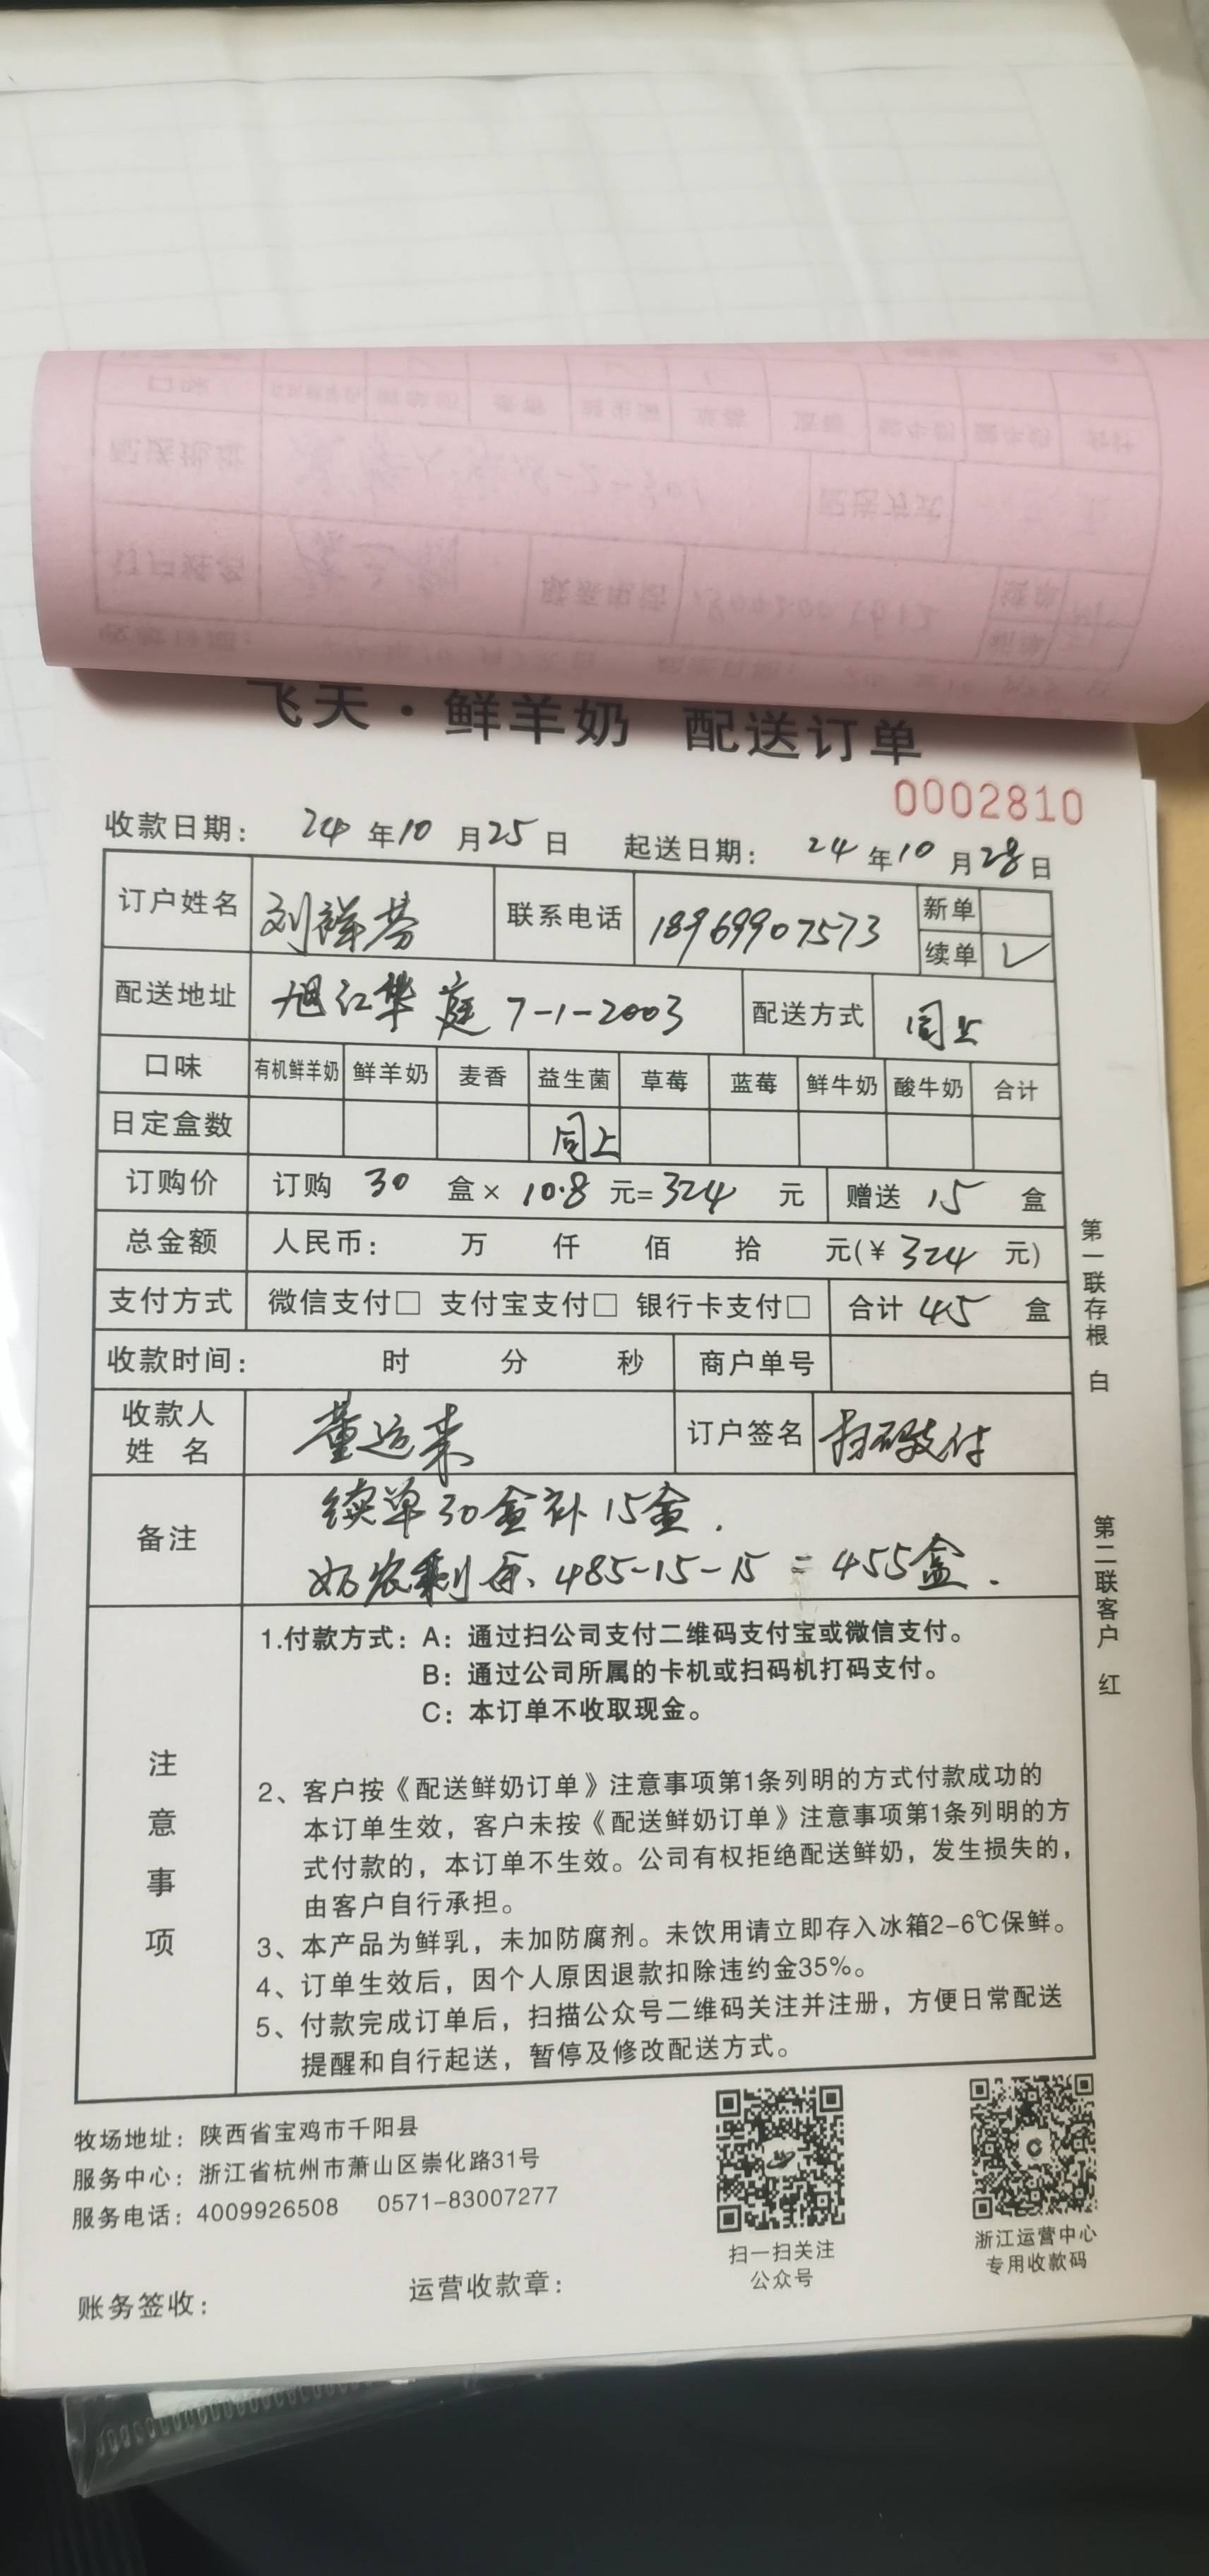 飞天·鲜羊奶 配送订单
0002810
收款日期： 24 年 10 月 25 日 起送日期： 24 年 10 月 28 日
订户姓名 刘祥芬 联系电话 18969907573 新单
续单 ✓
配送地址 旭江华庭 7-1-2003 配送方式 同上
口味 有机鲜羊奶 鲜羊奶 麦香 益生菌 草莓 蓝莓 鲜牛奶 酸牛奶 合计
日定盒数 同上
订购价 订购 30 盒× 10.8 元= 324 元 赠送 15 盒
总金额 人民币： 万 仟 佰 拾 元(￥ 324 元)
支付方式 微信支付□ 支付宝支付□ 银行卡支付□ 合计 45 盒
收款时间： 时 分 秒 商户单号
收款人
姓 名 董运来 订户签名 扫码支付
备注 续单30盒补15盒.
奶农剩 485-15-15=455盒.
注意事项
1.付款方式：A：通过扫公司支付二维码支付宝或微信支付。
B：通过公司所属的卡机或扫码机打码支付。
C：本订单不收取现金。
2、客户按《配送鲜奶订单》注意事项第1条列明的方式付款成功的
本订单生效，客户未按《配送鲜奶订单》注意事项第1条列明的方
式付款的，本订单不生效。公司有权拒绝配送鲜奶，发生损失的，
由客户自行承担。
3、本产品为鲜乳，未加防腐剂。未饮用请立即存入冰箱2-6℃保鲜。
4、订单生效后，因个人原因退款扣除违约金35%。
5、付款完成订单后，扫描公众号二维码关注并注册，方便日常配送
提醒和自行起送，暂停及修改配送方式。
第一联存根 白
第二联客户 红
牧场地址：陕西省宝鸡市千阳县
服务中心：浙江省杭州市萧山区崇化路31号
服务电话：4009926508 0571-83007277
扫一扫关注
公众号
浙江运营中心
专用收款码
账务签收： 运营收款章：